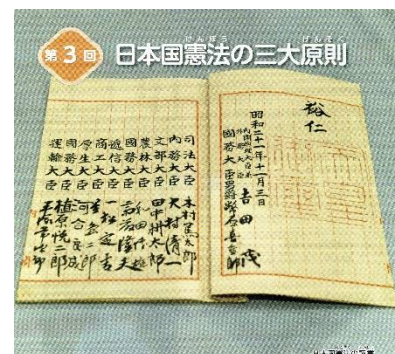 第3回 日本国憲法の三大原則
けんぽう
げんそく
裕仁
昭和二十一年十一月三日
内閣総理大臣兼
外務大臣 吉田茂
國務大臣 男爵 幣原喜重郎
司法大臣 木村篤太郎
内務大臣 大村清一
文部大臣 田中耕太郎
農林大臣 和田博雄
國務大臣 斎藤隆夫
逓信大臣 一松定吉
商工大臣 星島二郎
厚生大臣 河合良成
國務大臣 植原悦二郎
運輸大臣 平塚常次郎